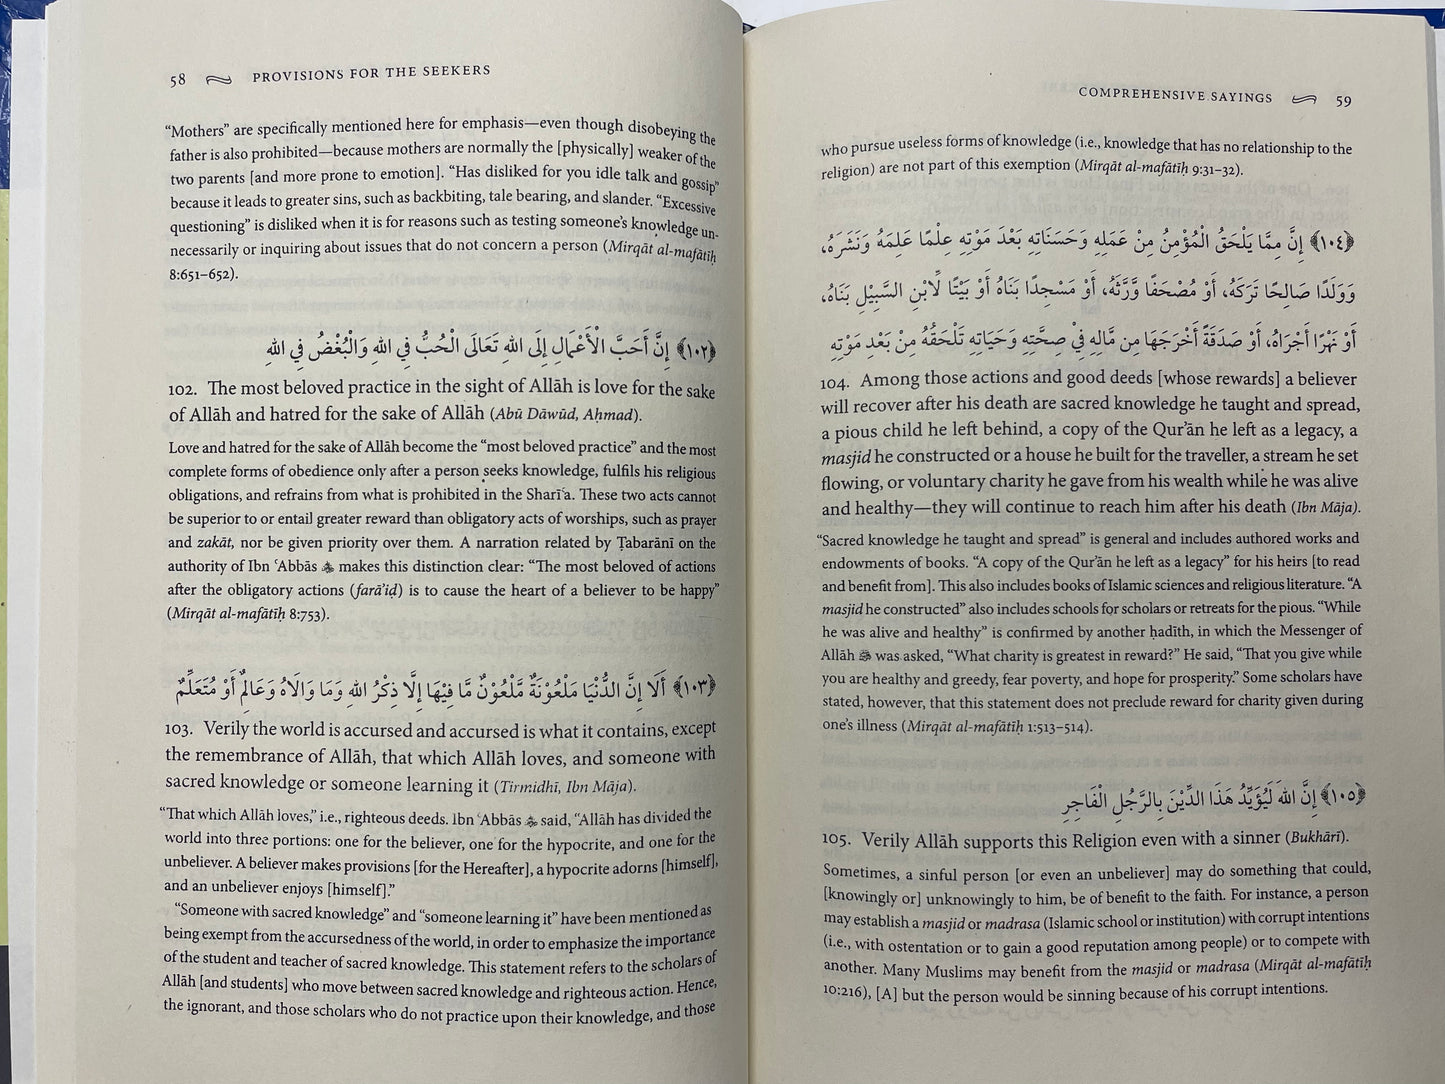 58 PROVISIONS FOR THE SEEKERS
“Mothers” are specifically mentioned here for emphasis—even though disobeying the
father is also prohibited—because mothers are normally the [physically] weaker of the
two parents [and more prone to emotion]. “Has disliked for you idle talk and gossip”
because it leads to greater sins, such as backbiting, tale bearing, and slander. “Excessive
questioning” is disliked when it is for reasons such as testing someone’s knowledge un-
necessarily or inquiring about issues that do not concern a person (Mirqāt al-mafātīḥ
8:651–652).
﴿١٠٢﴾ إِنَّ أَحَبَّ الْأَعْمَالِ إِلَى اللهِ تَعَالَى الْحُبُّ فِي اللهِ وَالْبُغْضُ فِي اللهِ
102. The most beloved practice in the sight of Allāh is love for the sake
of Allāh and hatred for the sake of Allāh (Abū Dāwūd, Aḥmad).
Love and hatred for the sake of Allāh become the “most beloved practice” and the most
complete forms of obedience only after a person seeks knowledge, fulfils his religious
obligations, and refrains from what is prohibited in the Sharīʿa. These two acts cannot
be superior to or entail greater reward than obligatory acts of worships, such as prayer
and zakāt, nor be given priority over them. A narration related by Ṭabarānī on the
authority of Ibn ʿAbbās makes this distinction clear: “The most beloved of actions
after the obligatory actions (farāʾiḍ) is to cause the heart of a believer to be happy”
(Mirqāt al-mafātīḥ 8:753).
﴿١٠٣﴾ أَلَا إِنَّ الدُّنْيَا مَلْعُوْنَةٌ مَّلْعُوْنٌ مَّا فِيْهَا إِلَّا ذِكْرُ اللهِ وَمَا وَالَاهُ وَعَالِمٌ أَوْ مُتَعَلِّمٌ
103. Verily the world is accursed and accursed is what it contains, except
the remembrance of Allāh, that which Allāh loves, and someone with
sacred knowledge or someone learning it (Tirmidhī, Ibn Māja).
“That which Allāh loves,” i.e., righteous deeds. Ibn ʿAbbās said, “Allāh has divided the
world into three portions: one for the believer, one for the hypocrite, and one for the
unbeliever. A believer makes provisions [for the Hereafter], a hypocrite adorns [himself],
and an unbeliever enjoys [himself].”
“Someone with sacred knowledge” and “someone learning it” have been mentioned as
being exempt from the accursedness of the world, in order to emphasize the importance
of the student and teacher of sacred knowledge. This statement refers to the scholars of
Allāh [and students] who move between sacred knowledge and righteous action. Hence,
the ignorant, and those scholars who do not practice upon their knowledge, and those
COMPREHENSIVE SAYINGS 59
who pursue useless forms of knowledge (i.e., knowledge that has no relationship to the
religion) are not part of this exemption (Mirqāt al-mafātīḥ 9:31–32).
﴿١٠٤﴾ إِنَّ مِمَّا يَلْحَقُ الْمُؤْمِنُ مِنْ عَمَلِهِ وَحَسَنَاتِهِ بَعْدَ مَوْتِهِ عِلْمًا عَلِمَهُ وَنَشَرَهُ،
وَوَلَدًا صَالِحًا تَرَكَهُ، أَوْ مُصْحَفًا وَّرَّثَهُ، أَوْ مَسْجِدًا بَنَاهُ أَوْ بَيْتًا لِّابْنِ السَّبِيْلِ بَنَاهُ،
أَوْ نَهْرًا أَجْرَاهُ، أَوْ صَدَقَةً أَخْرَجَهَا مِن مَّالِهِ فِيْ صِحَّتِهِ وَحَيَاتِهِ تَلْحَقُهُ مِنْ بَعْدِ مَوْتِهِ
104. Among those actions and good deeds [whose rewards] a believer
will recover after his death are sacred knowledge he taught and spread,
a pious child he left behind, a copy of the Qurʾān he left as a legacy, a
masjid he constructed or a house he built for the traveller, a stream he set
flowing, or voluntary charity he gave from his wealth while he was alive
and healthy—they will continue to reach him after his death (Ibn Māja).
“Sacred knowledge he taught and spread” is general and includes authored works and
endowments of books. “A copy of the Qurʾān he left as a legacy” for his heirs [to read
and benefit from]. This also includes books of Islamic sciences and religious literature. “A
masjid he constructed” also includes schools for scholars or retreats for the pious. “While
he was alive and healthy” is confirmed by another ḥadīth, in which the Messenger of
Allāh ﷺ was asked, “What charity is greatest in reward?” He said, “That you give while
you are healthy and greedy, fear poverty, and hope for prosperity.” Some scholars have
stated, however, that this statement does not preclude reward for charity given during
one’s illness (Mirqāt al-mafātīḥ 1:513–514).
﴿١٠٥﴾ إِنَّ اللهَ لَيُؤَيِّدُ هَذَا الدِّيْنَ بِالرَّجُلِ الْفَاجِرِ
105. Verily Allāh supports this Religion even with a sinner (Bukhārī).
Sometimes, a sinful person [or even an unbeliever] may do something that could,
[knowingly or] unknowingly to him, be of benefit to the faith. For instance, a person
may establish a masjid or madrasa (Islamic school or institution) with corrupt intentions
(i.e., with ostentation or to gain a good reputation among people) or to compete with
another. Many Muslims may benefit from the masjid or madrasa (Mirqāt al-mafātīḥ
10:216), [A] but the person would be sinning because of his corrupt intentions.